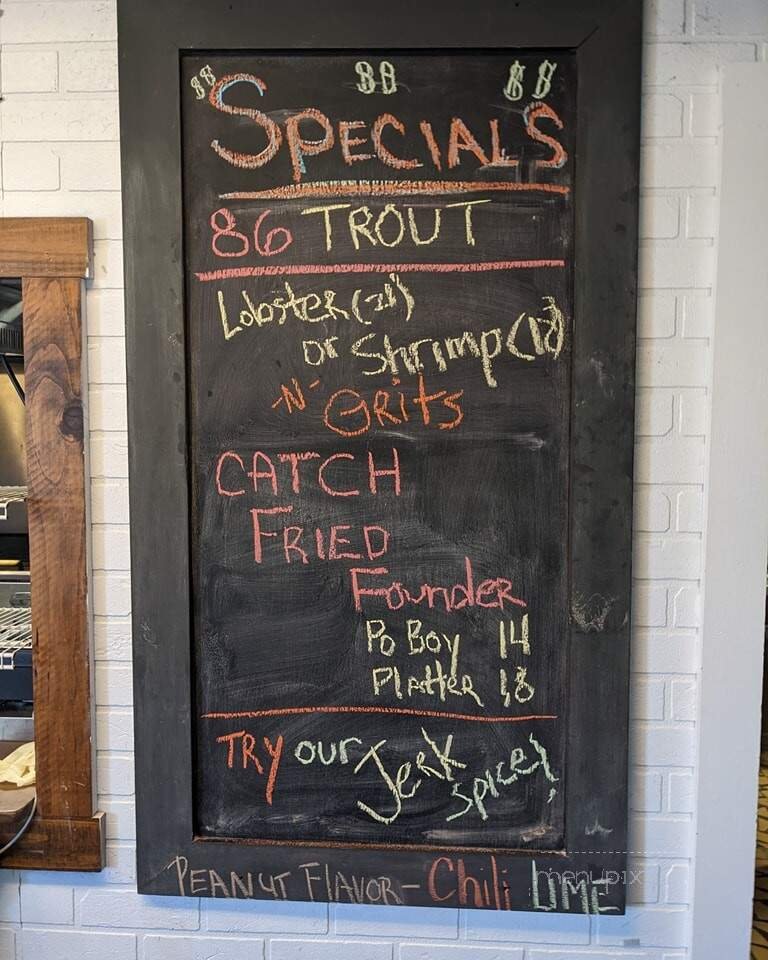 $$ $$ $$
SPECIALS
86 TROUT
Lobster (21)
or Shrimp (18)
-N- GRitS
CATCH
FRIED
FounDER
Po Boy 14
Platter 18
TRY our Jerk
spice!
PEANUT FLAVOR - Chili LIME
menupix